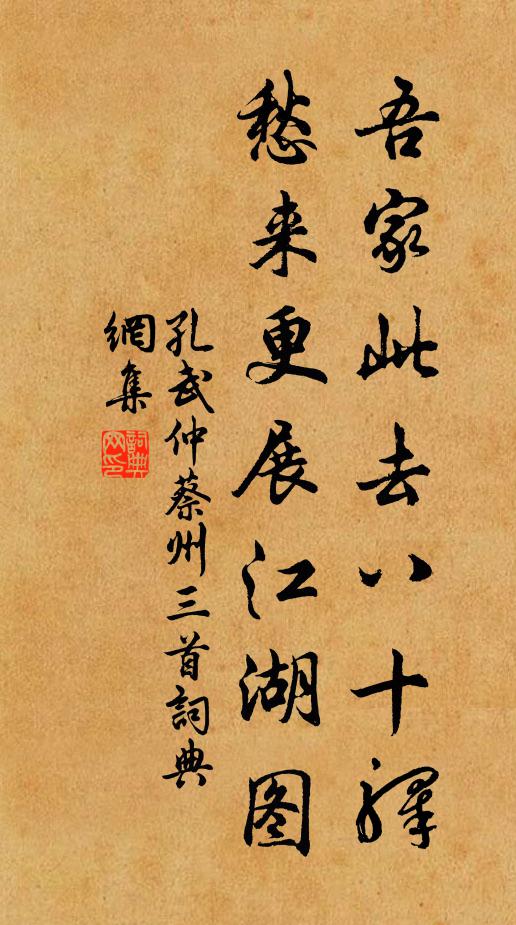 吾家此去八十驛
愁来更展江湖图
孔武仲蔡州三首詞典
網集
詞典
网印